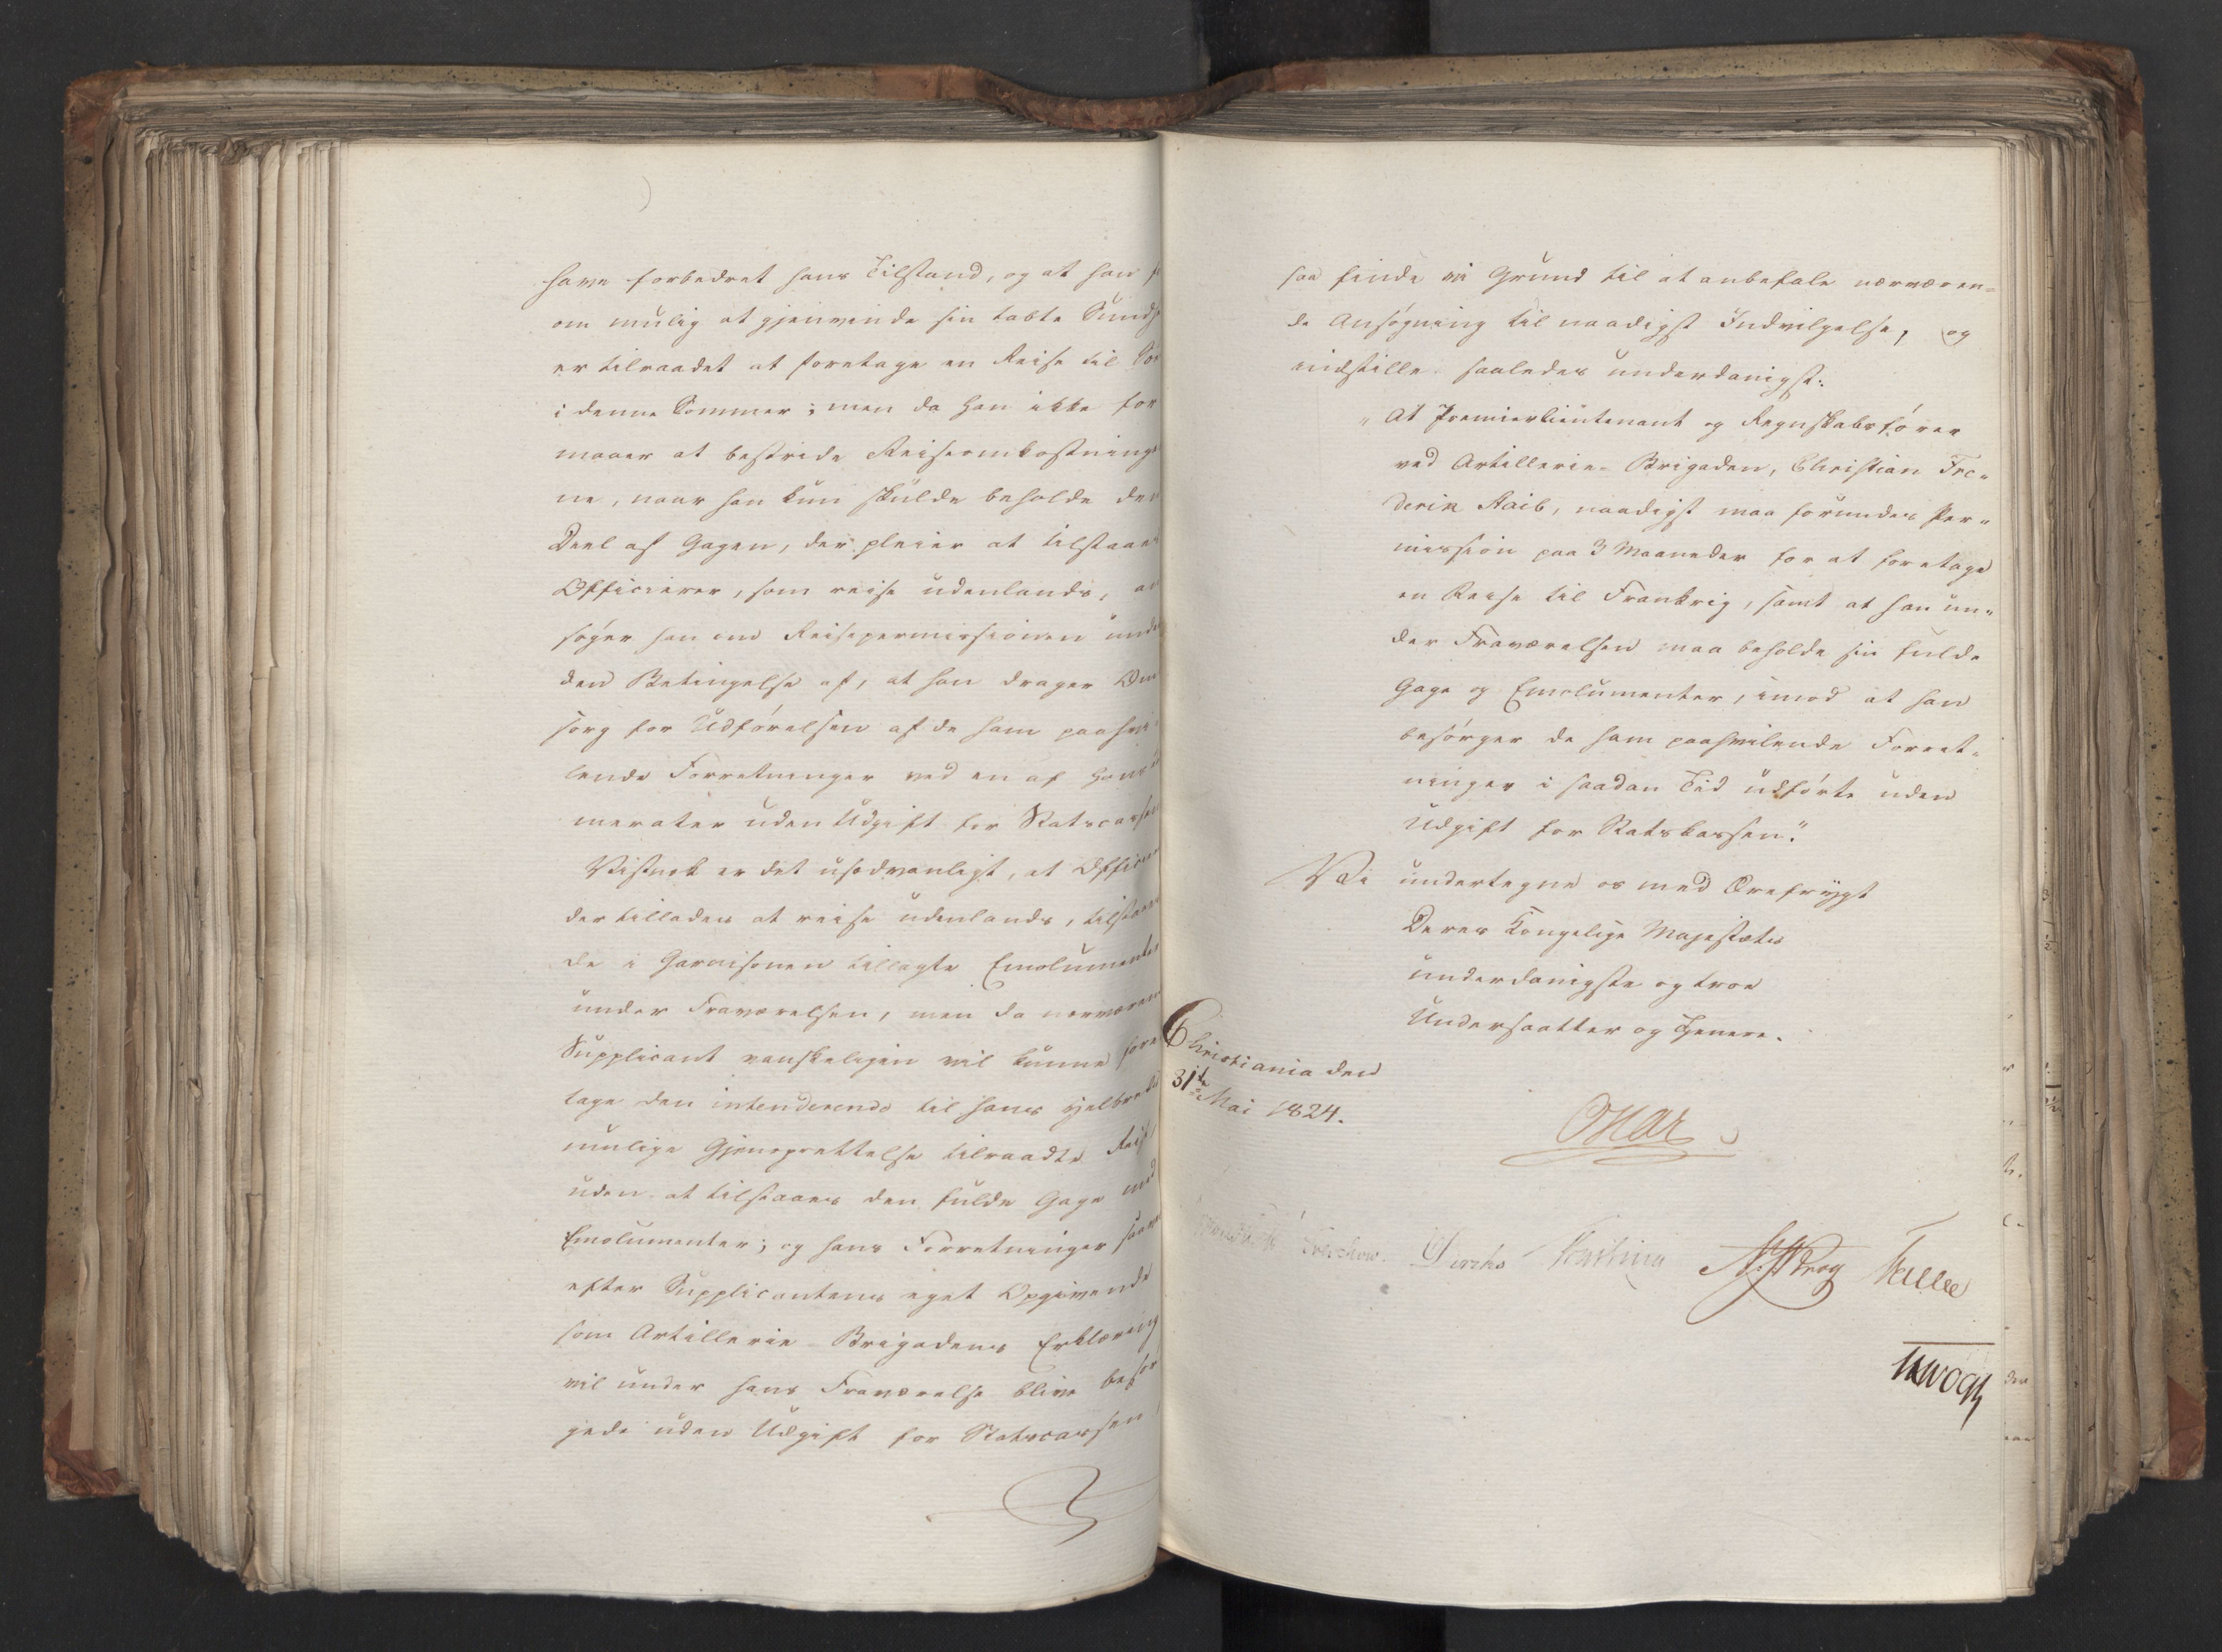 have forbedret hans Tilstand, og at han f
om mulig at gjenvinde sin tabte Sundh
er tilraadet at foretage en Reise til
i denne Sommer; men da han ikke for
maaer at bestride Reiseomkostninge
ne, naar han kun skulde beholde den
Deel af Gagen, der pleier at tilstaaes
Officierer, som reise udenlands, an
søger han om Reisepermissionen under
den Betingelse af, at han drager Om
sorg for Udførelsen af de ham paahvi
lende Forretninger ved en af hans
merater uden Udgift for Statscassen
Vistnok er det usædvanligt, at Officer
der tillades at reise udenlands, tilstaaes
de i Garnisonen tillagte Emolumenter
under Fraværelsen, men da nærværen
Supplicant vanskeligen vil kunne fore
tage den intenderende til hans Helbreds
mulige Gjenoprettelse tilraadte Reise
uden at tilstaaes den fulde Gage med
Emolumenter; og hans Forretninger saavel
efter Supplicantens eget Opgivende
som Artillerie-Brigadens Erklæring
vil under hans Fraværelse blive besør
gede uden Udgift for Statscassen
saa finde vi Grund til at anbefale nærværen=
de Ansøgning til naadigst Indvilgelse, og
indstille saaledes underdanigst:
"At Premierlieutenant og Regnskabsfører
ved Artillerie-Brigaden, Christian Fre=
derik Raib, naadigst maa forundes Per=
mission paa 3 Maaneder for at foretage
en Reise til Frankrig, samt at han un=
der Fraværelsen maa beholde sin fulde
Gage og Emolumenter, imod at han
besørger de ham paahvilende Forret=
ninger i saadan Tid udførte uden
Udgift for Statskassen."
Vi undertegne os med Ærefrygt
Deres Kongelige Majestæts
underdanigste og troe
Undersaatter og Tjenere.
Christiania den
31te Mai 1824.
Treschow. Diriks
Krog
Vogt